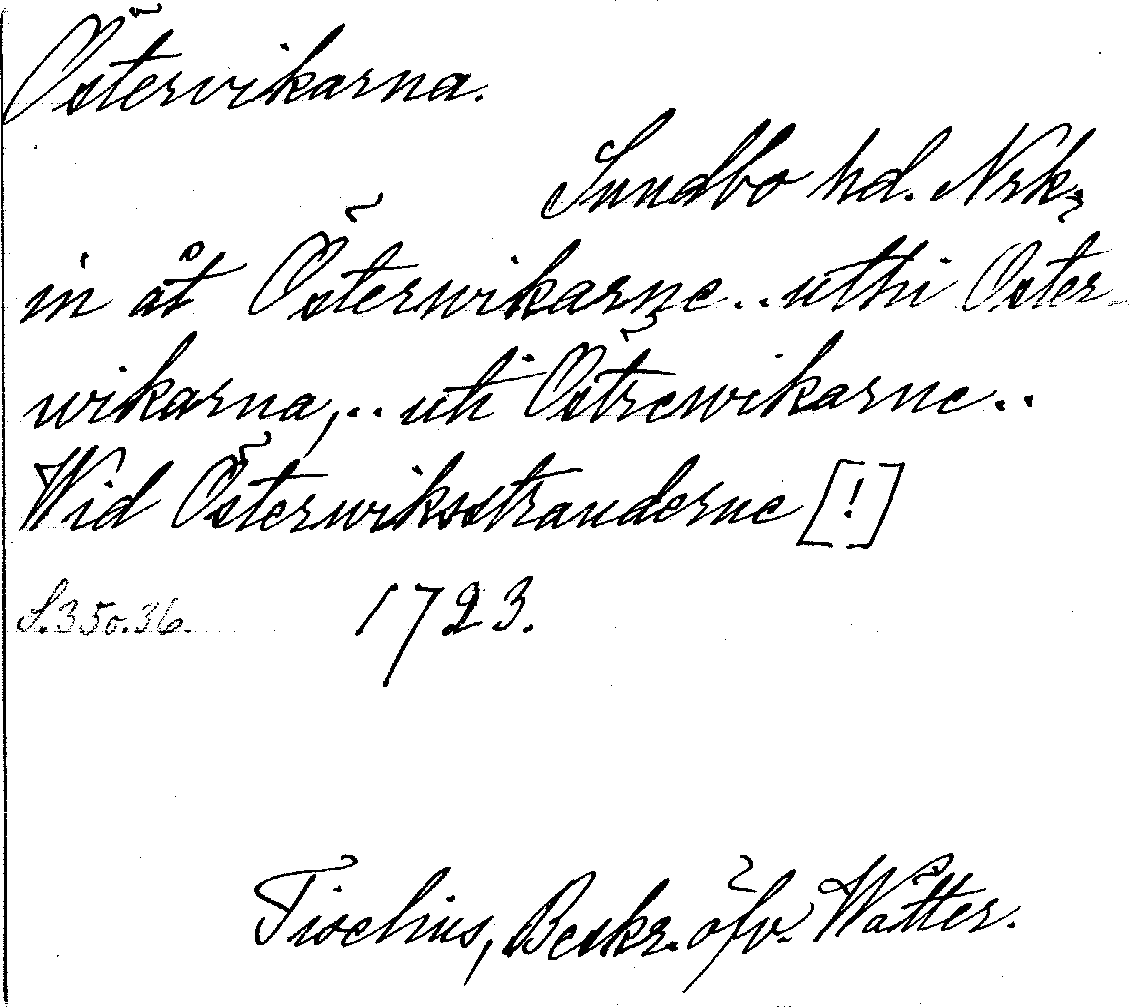 Östervikarna.
Sundbo hd. Nrk.
in åt Österwikarne .. uthi Öster-
wikarna, .. uti Östrewikarne ..
Wid Österwiksstranderne [!]
S. 35 o. 36. 1723.
Tiselius, Beskr. öfv. Wätter.